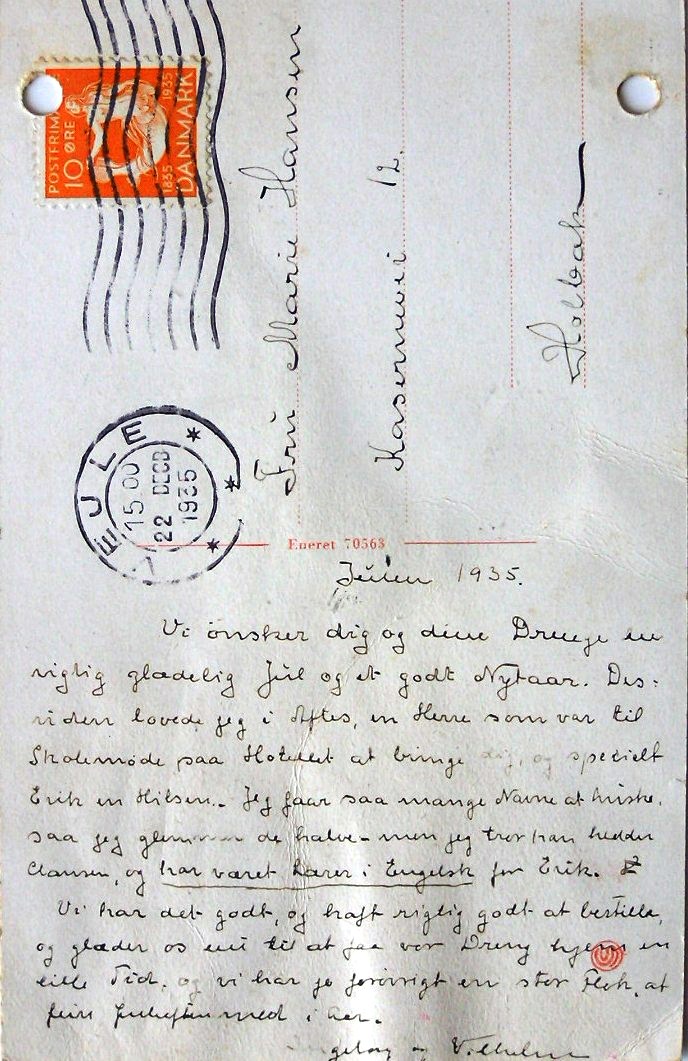 POSTFRIM
10 ØRE
1835 1935
DANMARK
VEJLE
15.00
22 DECB
1935
Fru Marie Hansen
Kasernevei 12.
Holbæk
Eneret 70563
Julen 1935.
Vi ønsker dig og dine Drenge en
rigtig glædelig Jul og et godt Nytaar. Des-
uden lovede jeg i Aftes, en Herre som var til
Skolemøde paa Hotellet at bringe dig, og specielt
Erik en Hilsen. Jeg faar saa mange Navne at huske,
saa jeg glemmer de halve - men jeg tror han hedder
Clausen, og har været Lærer i Engelsk for Erik.
Vi har det godt, og haft rigtig godt at bestille,
og glæder os nu til at faa vor Dreng hjem en
lille Tid, og vi har jo forøvrigt en stor Flok, at
fejre Juleaften med i Aar.
Ingeborg og Vilhelm